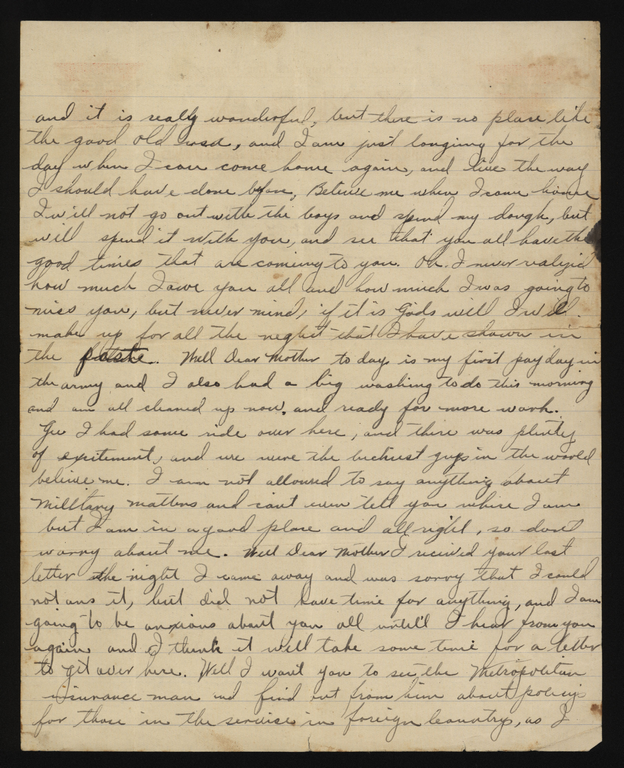 and it is really wonderful, but there is no place like
the good old usa, and I am just longing for the
day when I can come home again, and live the way
I should have done before, Believe me when I come home
I will not go out with the boys and spend my dough, but
will spend it with you, and see that you all have the
good times that are coming to you. Oh. I never realized
how much I owe you all and how much I was going to
miss you, but never mind, if it is Gods will I will
make up for all the neglect that I have shown in
the paste. Well Dear Mother to day is my first pay day in
the army and I also had a big washing to do this morning
and am all cleaned up now, and ready for more work.
Gee I had some ride over here, and there was plenty
of excitement, and we were the luckiest guys in the world
believe me. I am not allowed to say anything about
military matters and cant even tell you where I am
but I am in a good place and all right, so dont
worry about me. Well Dear Mother I received your last
letter the night I came away and was sorry that I could
not ans it, but did not have time for anything, and I am
going to be anxious about you all untill I hear from you
again and I think it will take some time for a letter
to git over here. Well I want you to see the Metropolitan
insurance man and find out from him about policy
for those in the service in foreign Country, as I